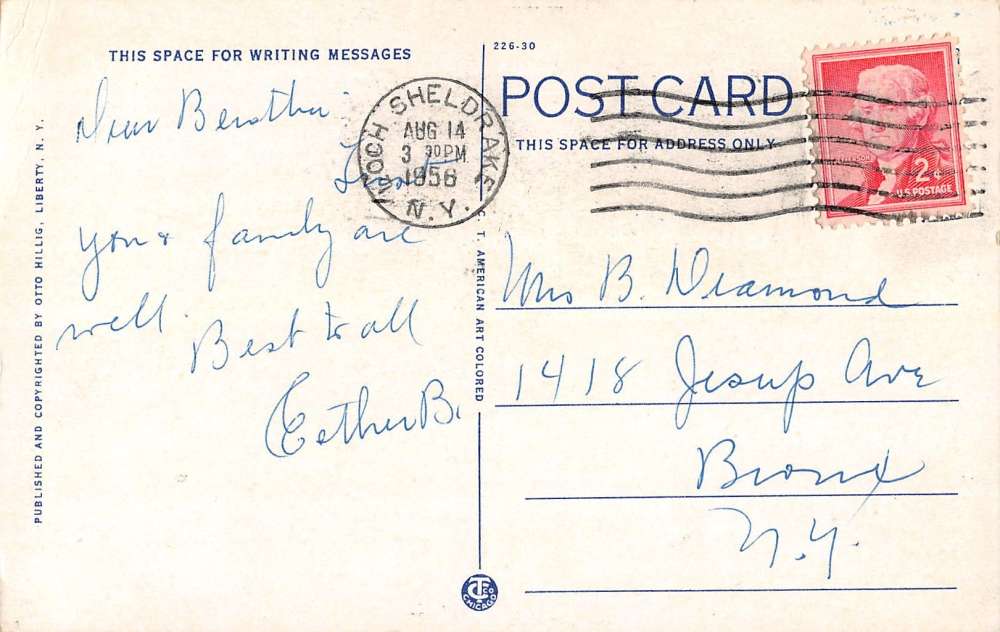 THIS SPACE FOR WRITING MESSAGES
Dear Bertha
Trust
you & family are
well.
Best to all
Esther B.
PUBLISHED AND COPYRIGHTED BY OTTO HILLIG, LIBERTY, N. Y.
226-30
POST CARD
THIS SPACE FOR ADDRESS ONLY
LOCH SHELDRAKE
AUG 14
3 30 PM
1956
N.Y.
2¢
U.S. POSTAGE
C. T. AMERICAN ART COLORED
Mrs B. Diamond
1418 Jesup Ave
Bronx
N.Y.
CT CO
CHICAGO